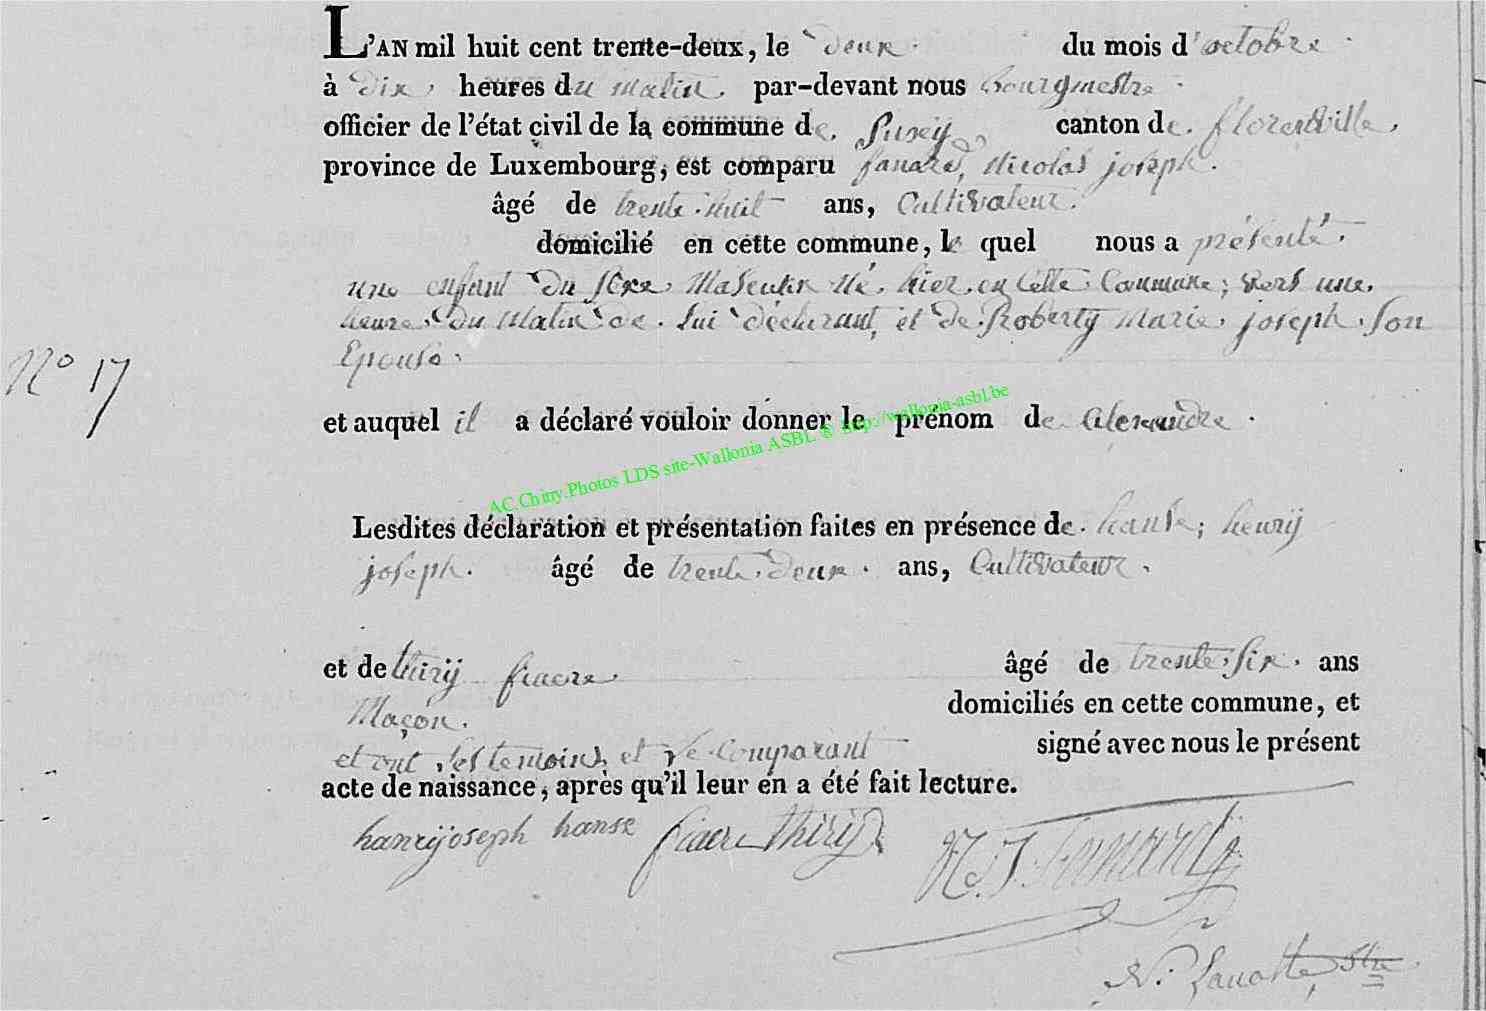 L'AN mil huit cent trente-deux, le deux du mois d'octobre
à dix heures du matin par-devant nous bourgmestre
officier de l'état civil de la commune de Suxy canton de florentville,
province de Luxembourg, est comparu fanard, Nicolas joseph.
âgé de trente-huit ans, Cultivateur.
domicilié en cette commune, le quel nous a présenté
une enfant du sexe Masculin né hier en cette Commune; vers une
heure du Matin de lui déclarant, et de Roberty Marie joseph son
Epouse.
N° 17
et auquel il a déclaré vouloir donner le prénom de alexandre.
AC.Chiny.Photos LDS site-Wallonia ASBL © http://wallonia-asbl.be
Lesdites déclaration et présentation faites en présence de hanse; henrij
joseph. âgé de trente-deux ans, Cultivateur.
et de thirij fiacre âgé de trente-six ans
Maçon. domiciliés en cette commune, et
et ont les temoins et le Comparant signé avec nous le présent
acte de naissance, après qu'il leur en a été fait lecture.
hanrijoseph hanse fiacre thirij N. J. fanard
N. Lavotte